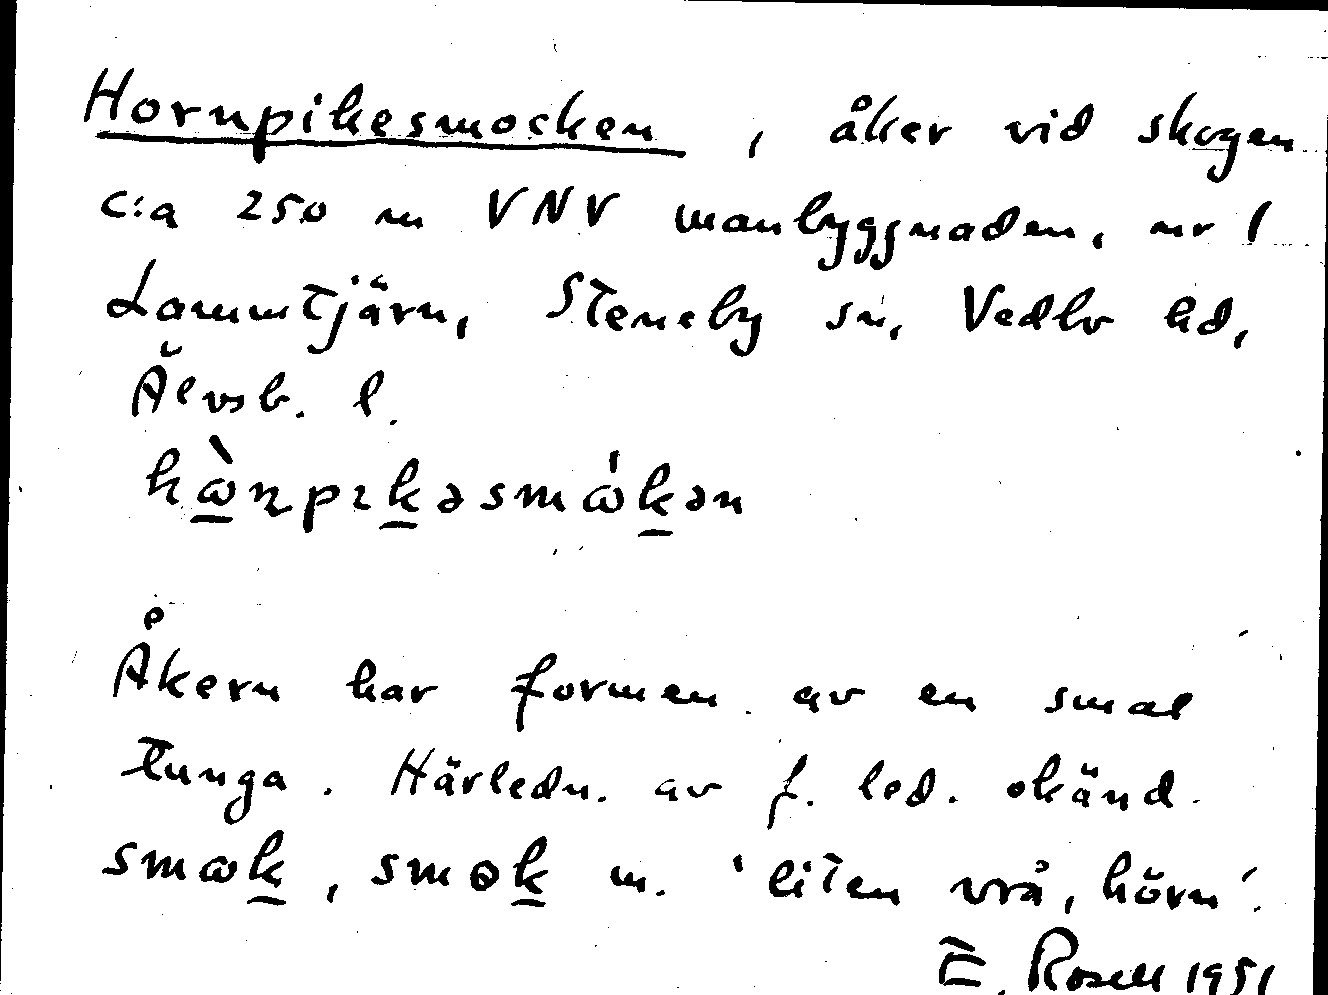 Hornpikesmocken, åker vid skogen
c:a 250 m VNV manbyggnaden, nr 1
Lammtjärn, Steneby sn, Vedbo hd,
Älvsb. l.
hὼɳpɪk̲əsmώk̲ən
Åkern har formen av en smal
tunga. Härledn. av f. led. okänd.
smωk̲, smɵk̲ m. 'liten vrå, hörn'.
E. Rosell 1951